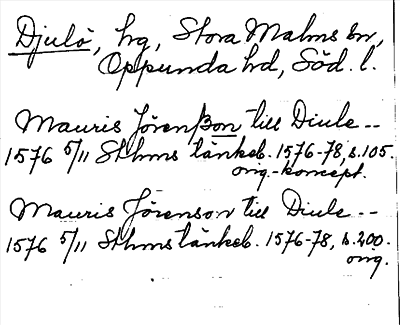 Djulö, hg, Stora Malms sn,
Oppunda hd, Söd. l.
Mauris Jörenßon till Diule --
1576 5/11 Sthms tänkeb. 1576-78, s. 105.
orig.-koncept.
Mauris Jörenson till Diule --
1576 5/11 Sthms tänkeb. 1576-78, s. 200.
orig.